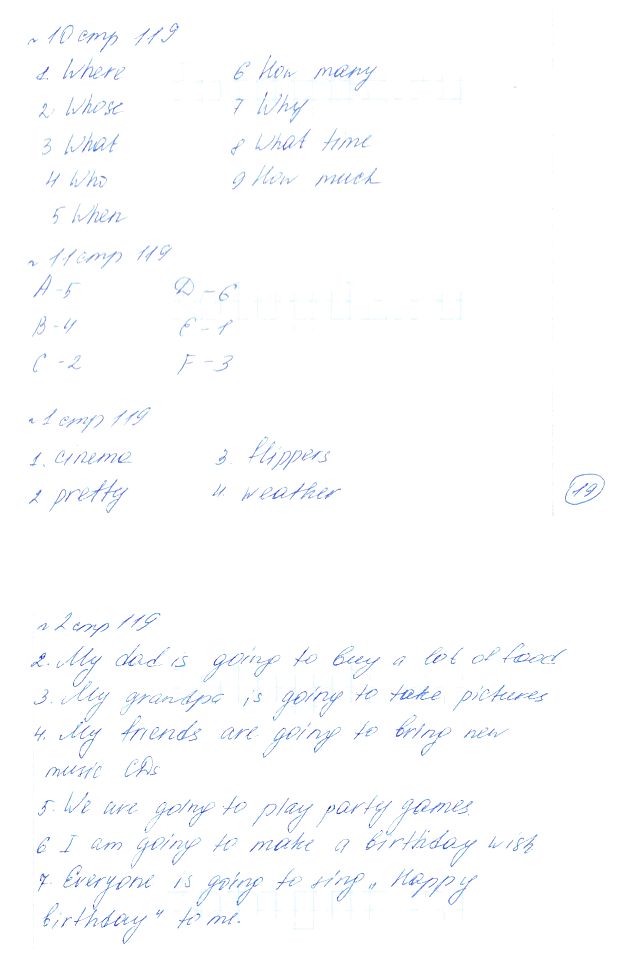 № 10 стр 119
1. Where
2 Whose
3 What
4 Who
5 When
6 How many
7 Why
8 What time
9 How much
№ 11 стр 119
A - 5
B - 4
C - 2
D - 6
E - 1
F - 3
№ 1 стр 119
1. cinema
2 pretty
3 flippers
4 weather
19
№ 2 стр 119
2. My dad is going to buy a lot of food
3. My grandpa is going to take pictures
4. My friends are going to bring new
music CDs
5. We are going to play party games.
6 I am going to make a birthday wish
7. Everyone is going to sing „Happy
birthday" to me.